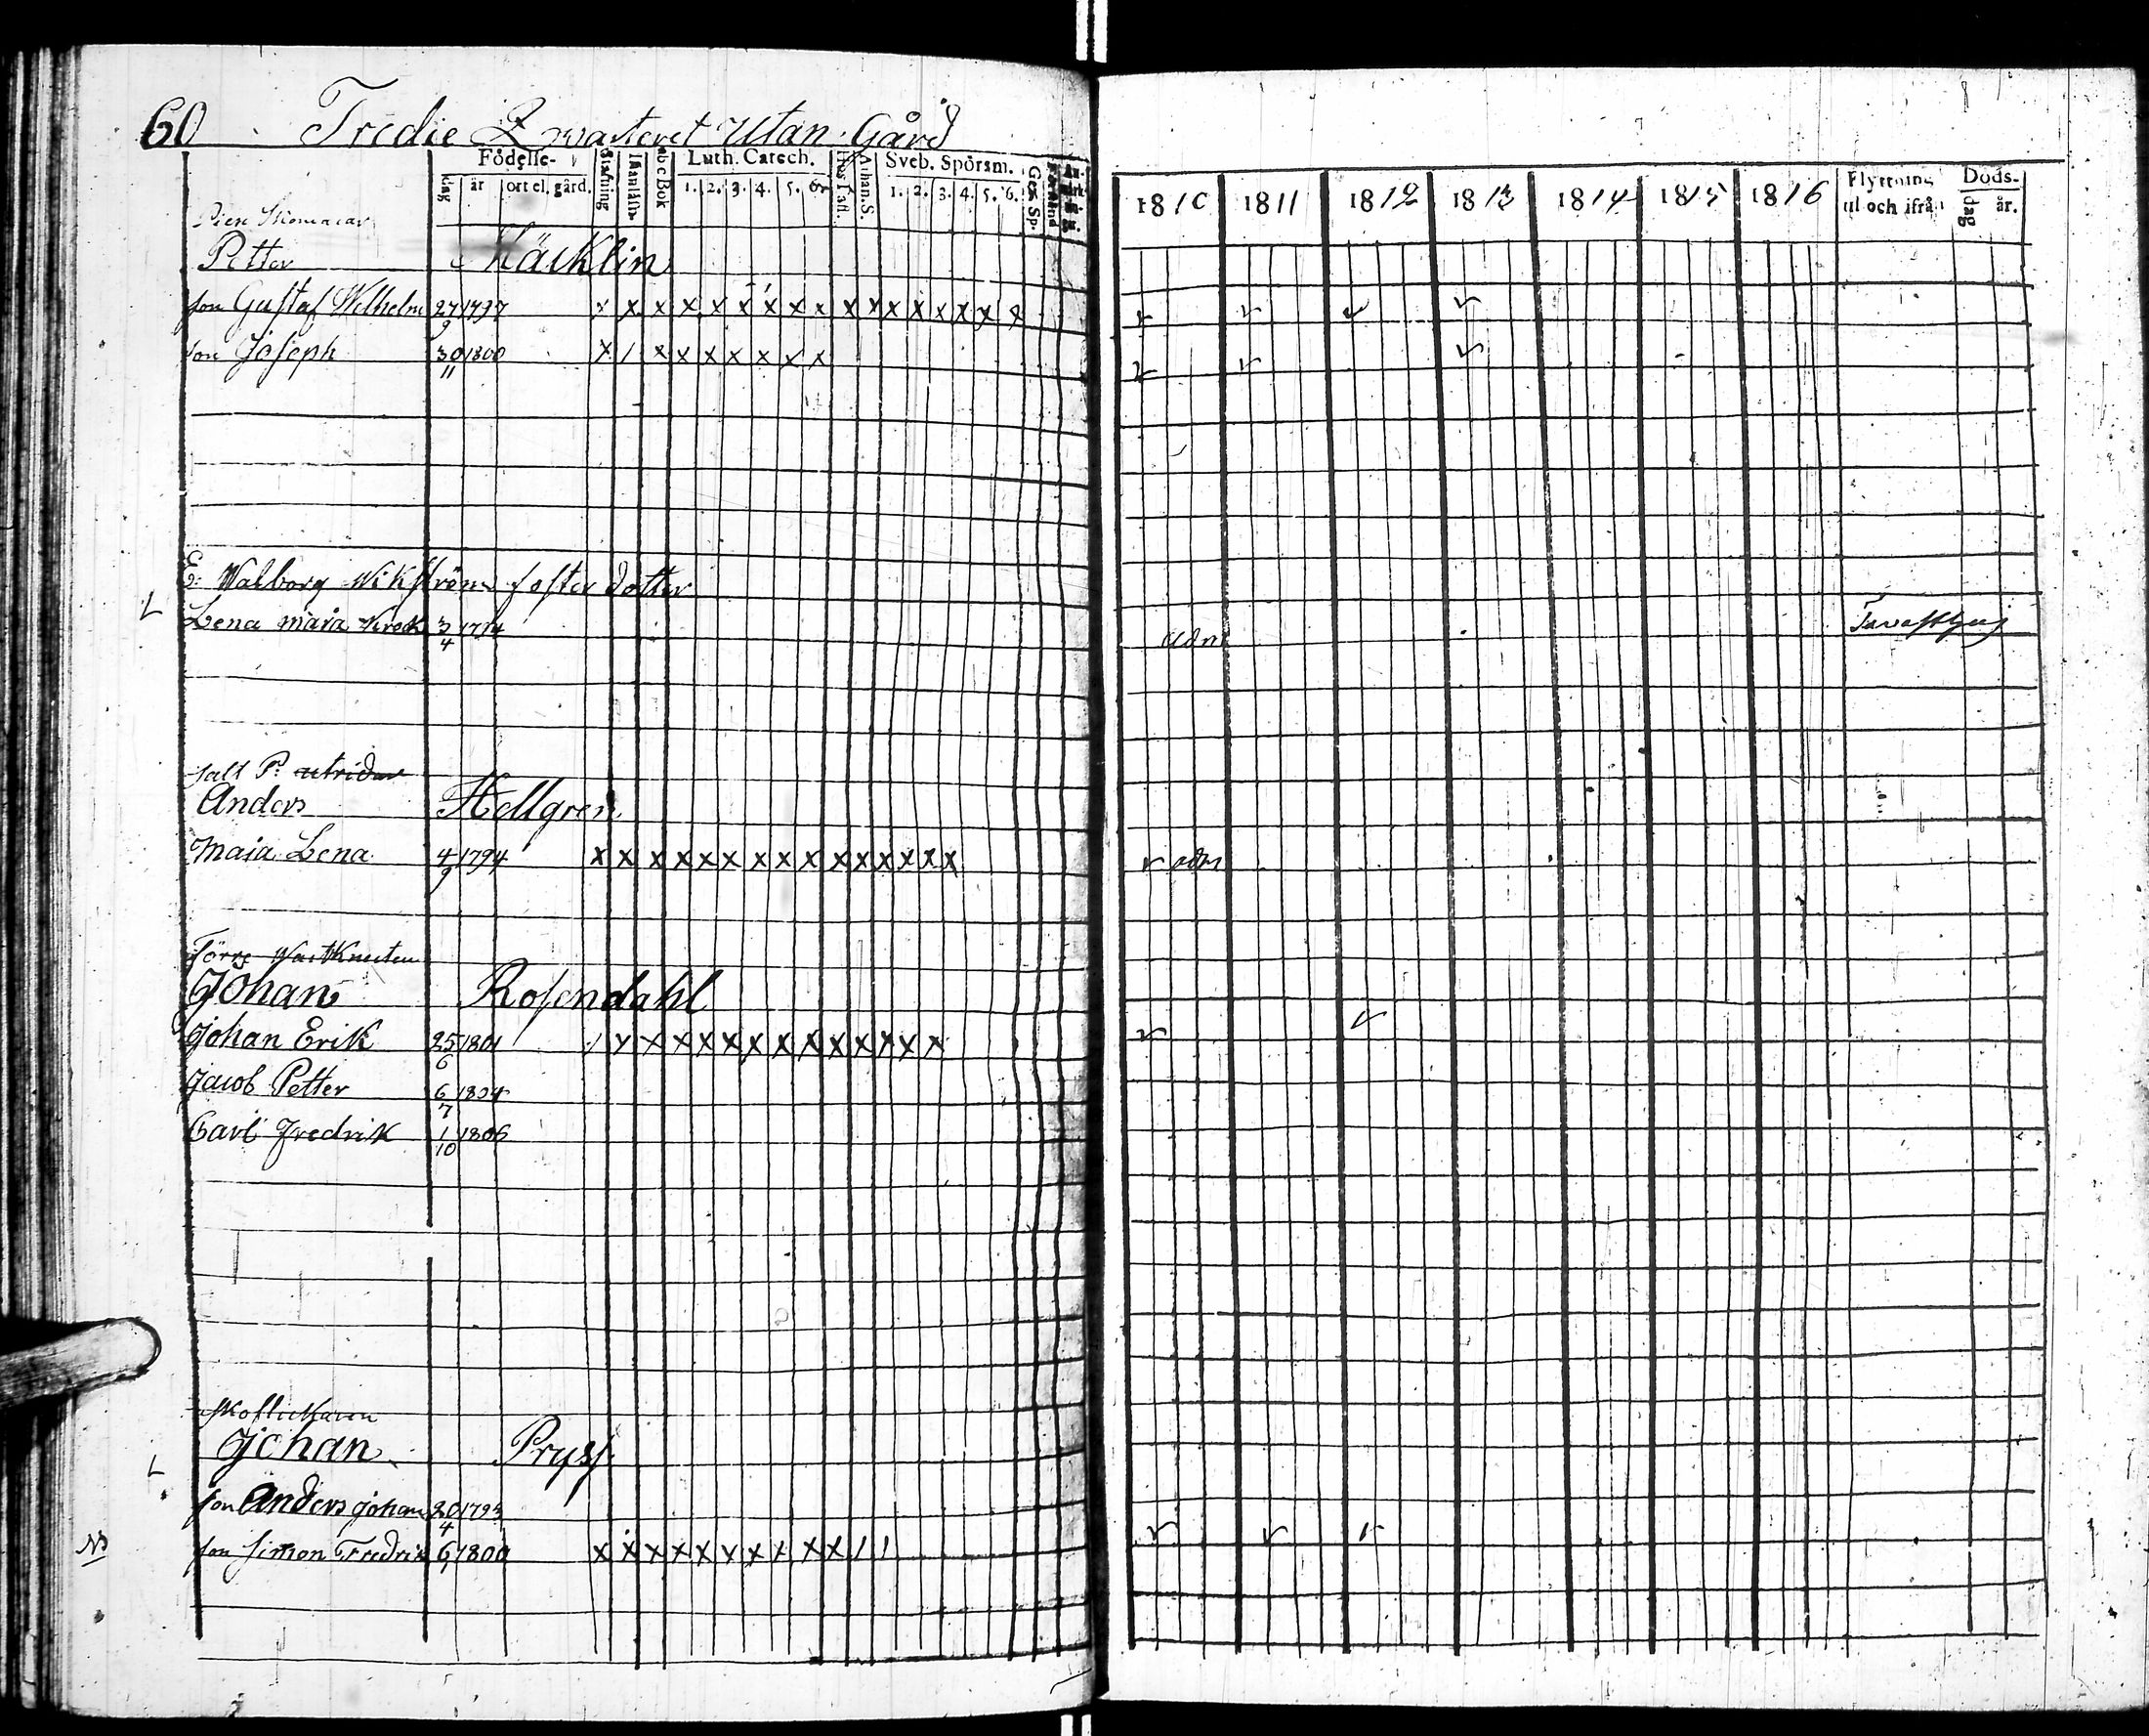 60 Tredie Qvarteret Utan Gård
Födelse-
dag år ort el. gård.
Stafning
Innanläsn.
abc Bok
Luth. Catech.
1. 2. 3. 4. 5. 6.
Hus Tafl.
Athan. S.
Sveb. Spörsm.
1. 2. 3. 4. 5. 6.
1810 1811 1812 1813 1814 1815 1816 Flyttning til och ifrån Döds- dag år.
Petter
son Gustaf Wilhelm 27/9 1797 x x x x x x x x x x x x x x x x x
son Joseph 30/11 1800 x / x x x x x x x
E: Walborg Wikström foster dotter
L Lena Maia 3/4 1794 adm
Anders Hellgren
Maia Lena 4/9 1794 x x x x x x x x x x x x x x x adm
Johan Rosendahl
Johan Erik 25/6 1801 / x x x x x x x x x x x x x
Jacob Petter 6/7 1804
Carl Fredrik 1/10 1806
Johan Pryss
L
son Anders Johan 20/4 1793
son Simon Fredrik 6/1 1800 x x x x x x x x x x / /